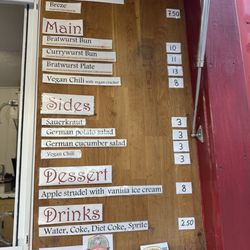 Breze 7.50
Main
Bratwurst Bun 10
Currywurst Bun 11
Bratwurst Plate 13
Vegan Chili with vegan cracker 8
Sides
Sauerkraut 3
German potato salad 3
German cucumber salad 3
Vegan Chili 3
Dessert
Apple strudel with vanilla ice cream 8
Drinks
Water, Coke, Diet Coke, Sprite 2.50